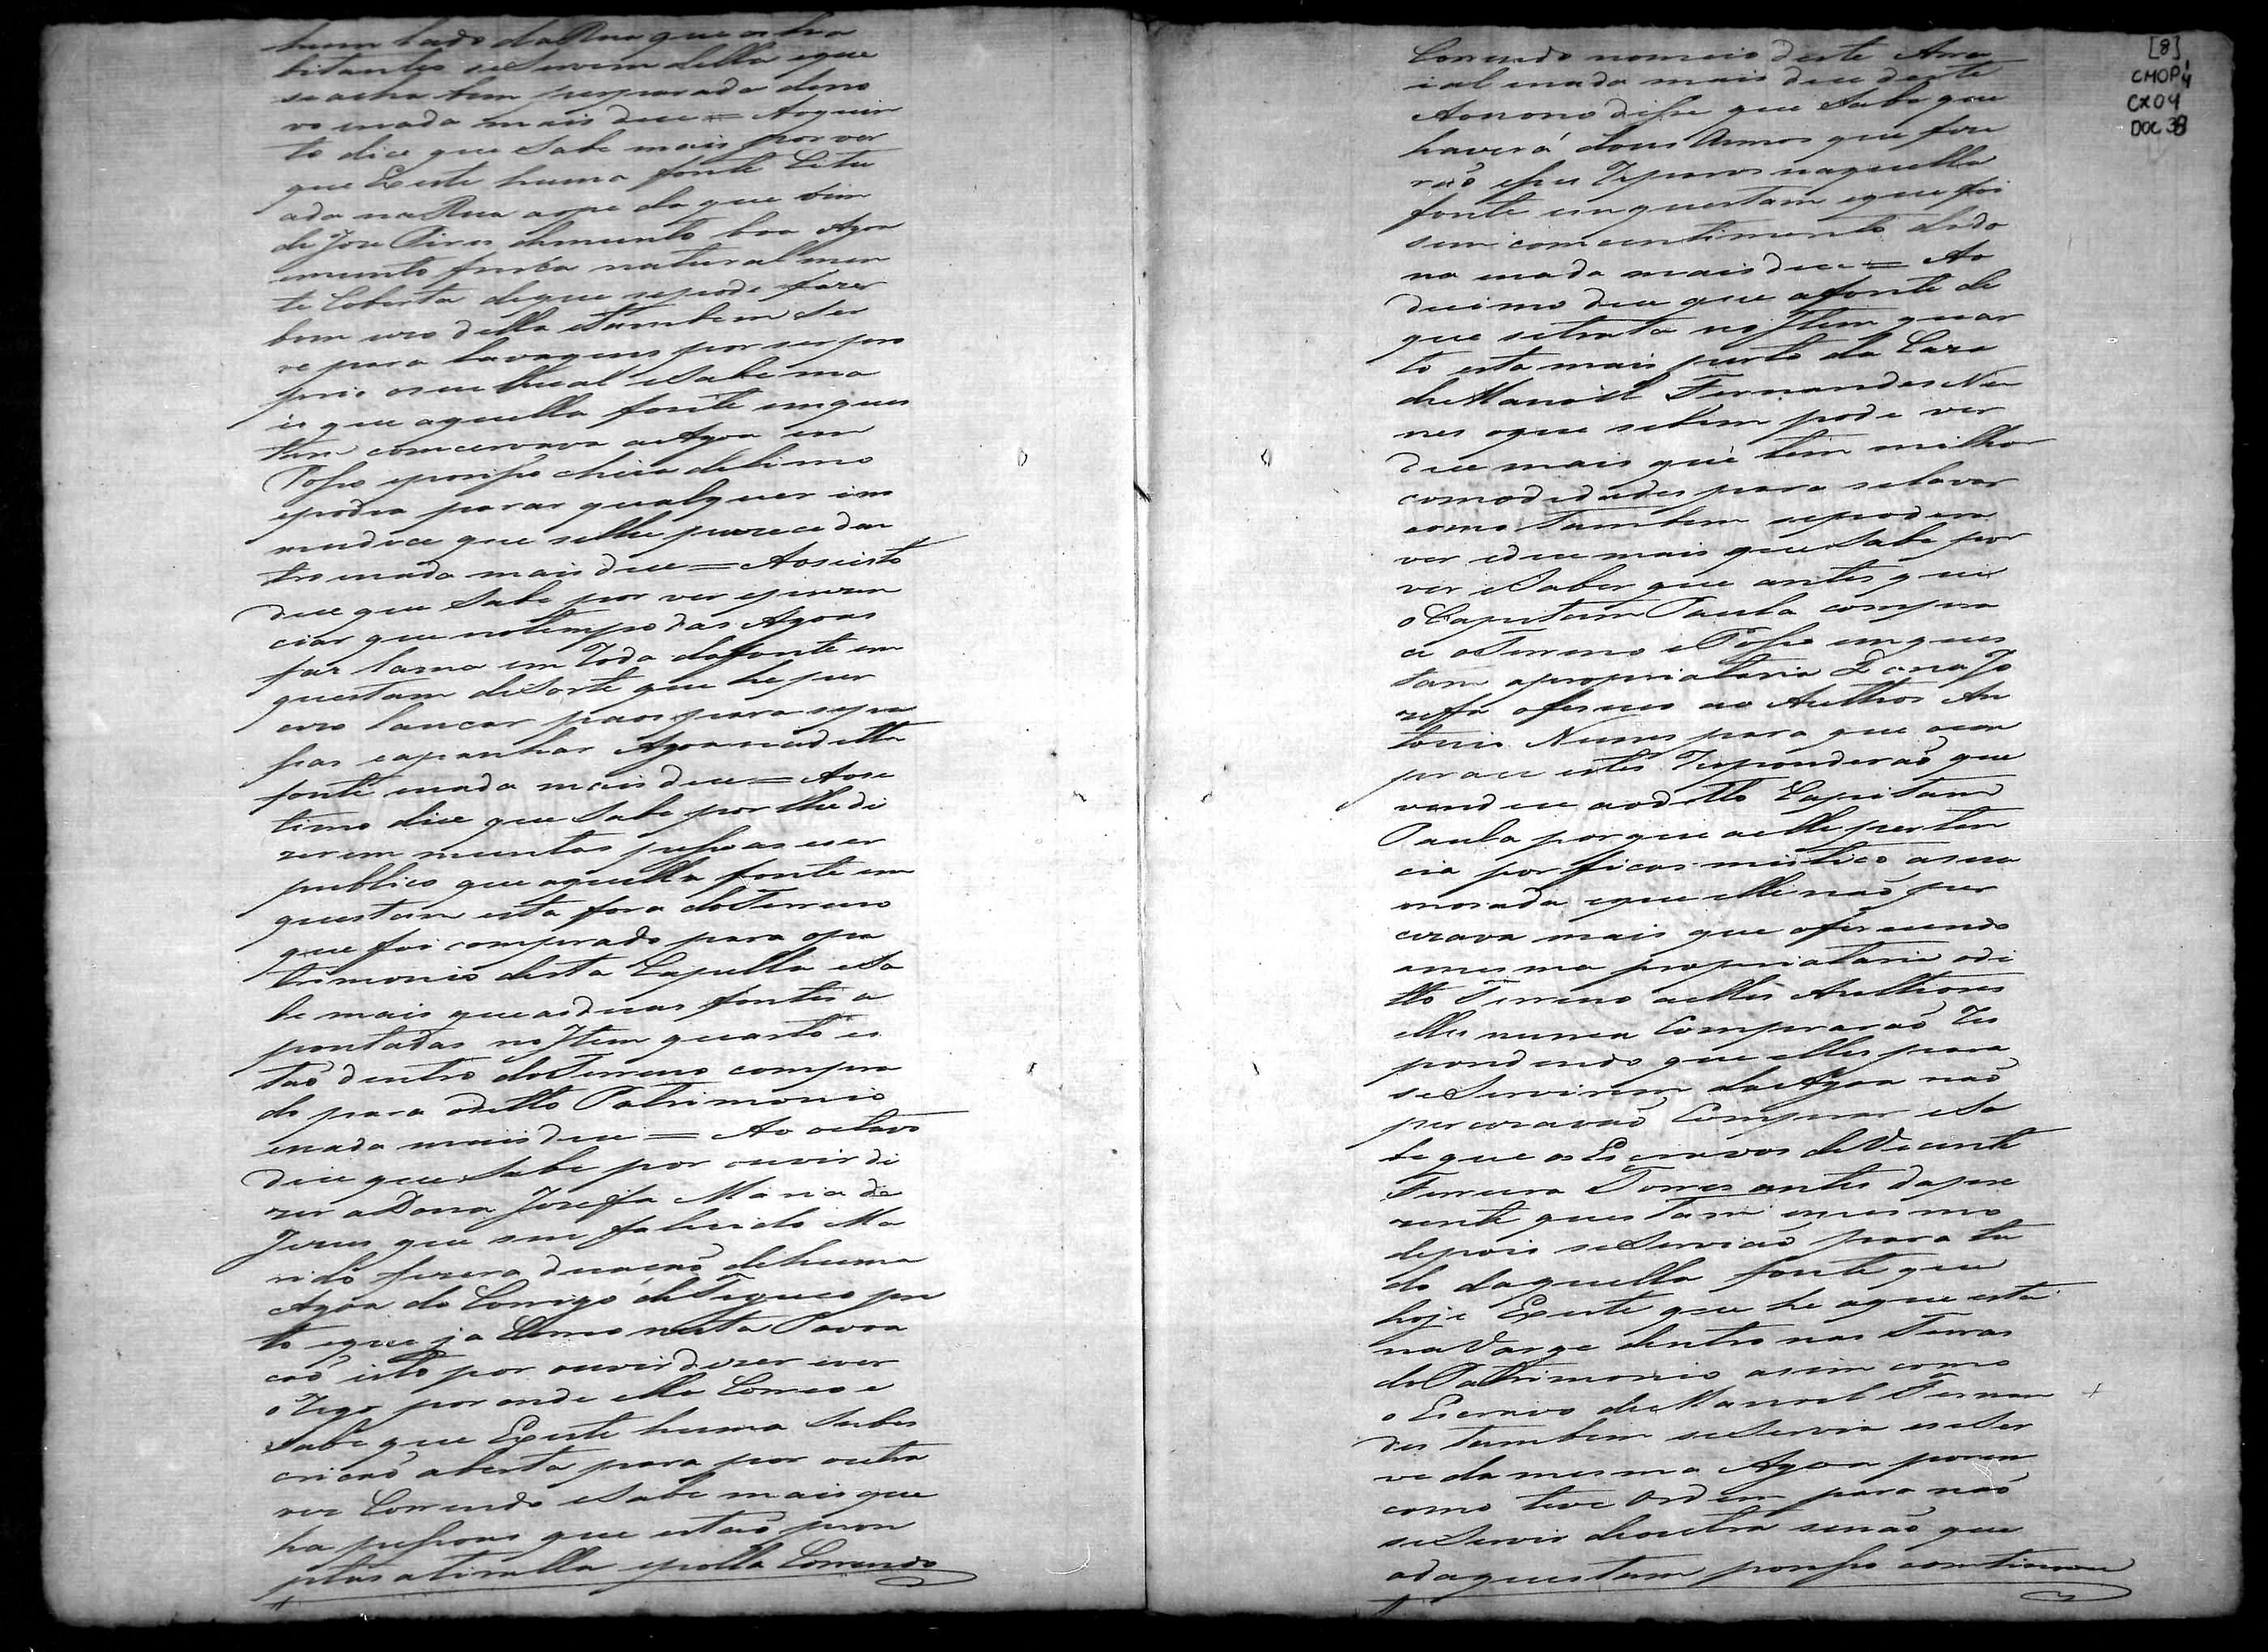 hum lado da Rua que os ha
bitantes se Servem della eque
se acha bem preparada deno
vo enada mais dice = Aoquin
to dice que Sabe mais por ver
que Existe huma fonte Citu
ada na Rua aope da que vem
de Jose Pires demuinto boa Agoa
emuinto fresca natural men
te Coberta deque sepode fazer
bom uzo della etambem Ser
ve para lavagens por ser pro
prio oseu lucal eSabe ma
is que aquella fonte emques
tam comcervava aAgoa em
Posso eporisso cheia delimo
epodia parar qualquer im
mundice que selhe parece den
tro enada mais dice = Aosexto
dice que Sabe por ver eprezen
ciar que notempo das Agoas
faz lama em Roda dafonte em
questam deSorte que he per
cizo lancar paos para sepa
sar eapanhar Agoa nadella
fonte enada mais dice = Aose
timo dice que Sabe por lhe di
zerem muintas pessoas eser
publico que aquella fonte em
questam esta fora doTerreno
que foi comprado para opa
trimonio desta Capella eSa
be mais que asduas fontes a
pontadas no Item quarto es
tão dentro doTerreno compra
do para oditto Patrimonio
enada mais dice = Ao oitavo
dice que Sabe por ouvir di
zer a Dona Josefa Maria de
Jezus que seu falecido Ma
rido fizera duacaõ dehuma
Agoa do Corrigo
to eque ja Correo nesta Povoa
caõ isto por ouvir dizer ever
oRego por onde ella Correo e
Sabe que Existe huma Subs
cricaõ aberta para por outra
vez Correndo eSabe mais que
ha pessoas que estaõ pron
ptas atiralla epolla Correndo
[8]
CMOP 1/4
CX04
DOC 38
Correndo nomeio deste Arra
ial enada mais dice deste
Aonono disse que Sabe que
haverá dous Annos que fize
raõ esses Reparos naquella
fonte emquestam eque foi
sem comcentimento dado
na enada mais dice = Ao
decimo dice que afonte de
que setrata no Item quar
to esta mais perto da Caza
de Manoel Fernandes Nu
nes oque sebem pode ver
dice mais que tem milhor
comodidades para selavar
como tambem sepodem
ver edice mais que Sabe por
ver eSaber que antes que
oCapitam Paula compra
ce oTerreno e Posso emques
tam apropriataria Dona Jo
zefa ofereceo ao Authos An
tonio Nunes para que ocom
prace estes Responderaõ que
vendece aoditto Capitam
Paula porque aelle perten
cia por ficar mistico asua
morada eque elle naõ per
cizava mais que oferecendo
amesma propriataria odi
tto Terreno aelles Authores
elles nunca Compraraõ Res
pondendo que elles para
seServirem daAgoa naõ
percizavaõ Comprar eSa
be que os Escravos de Vicente
Ferreira Torres antes dapre
zente questam emesmo
depois seServiaõ para tu
do daquella fonte que
hoje Existe que he aque está
na Varge dentro nas Terras
do Patrimonio asim como
o Escravo de Manoel Fernan
des tambem seServia eseSer
ve da mesma Agoa porem
como teve ordem para naõ
seServir deoutra senaõ que
adaquestam porisso continuou